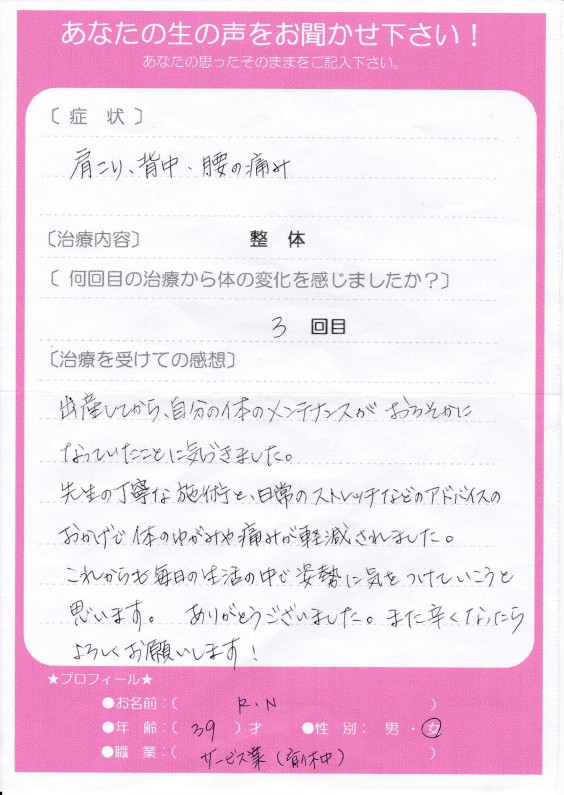 あなたの生の声をお聞かせ下さい！
あなたの思ったそのままをご記入下さい。
〔 症　状 〕
肩こり、背中、腰の痛み
〔治療内容〕　整　体
〔 何回目の治療から体の変化を感じましたか？〕
3 回目
〔治療を受けての感想〕
出産してから、自分の体のメンテナンスが おろそかに
なっていたことに気づきました。
先生の丁寧な施術と、日常のストレッチなどのアドバイスの
おかげで 体のゆがみや痛みが軽減されました。
これからも毎日の生活の中で姿勢に気をつけていこうと
思います。　ありがとうございました。また辛くなったら
よろしくお願いします！
★プロフィール★
●お名前：（ R.N ）
●年　齢：（ 39 ）才　●性　別：　男 ・ 女
●職　業：（ サービス業（育休中） ）